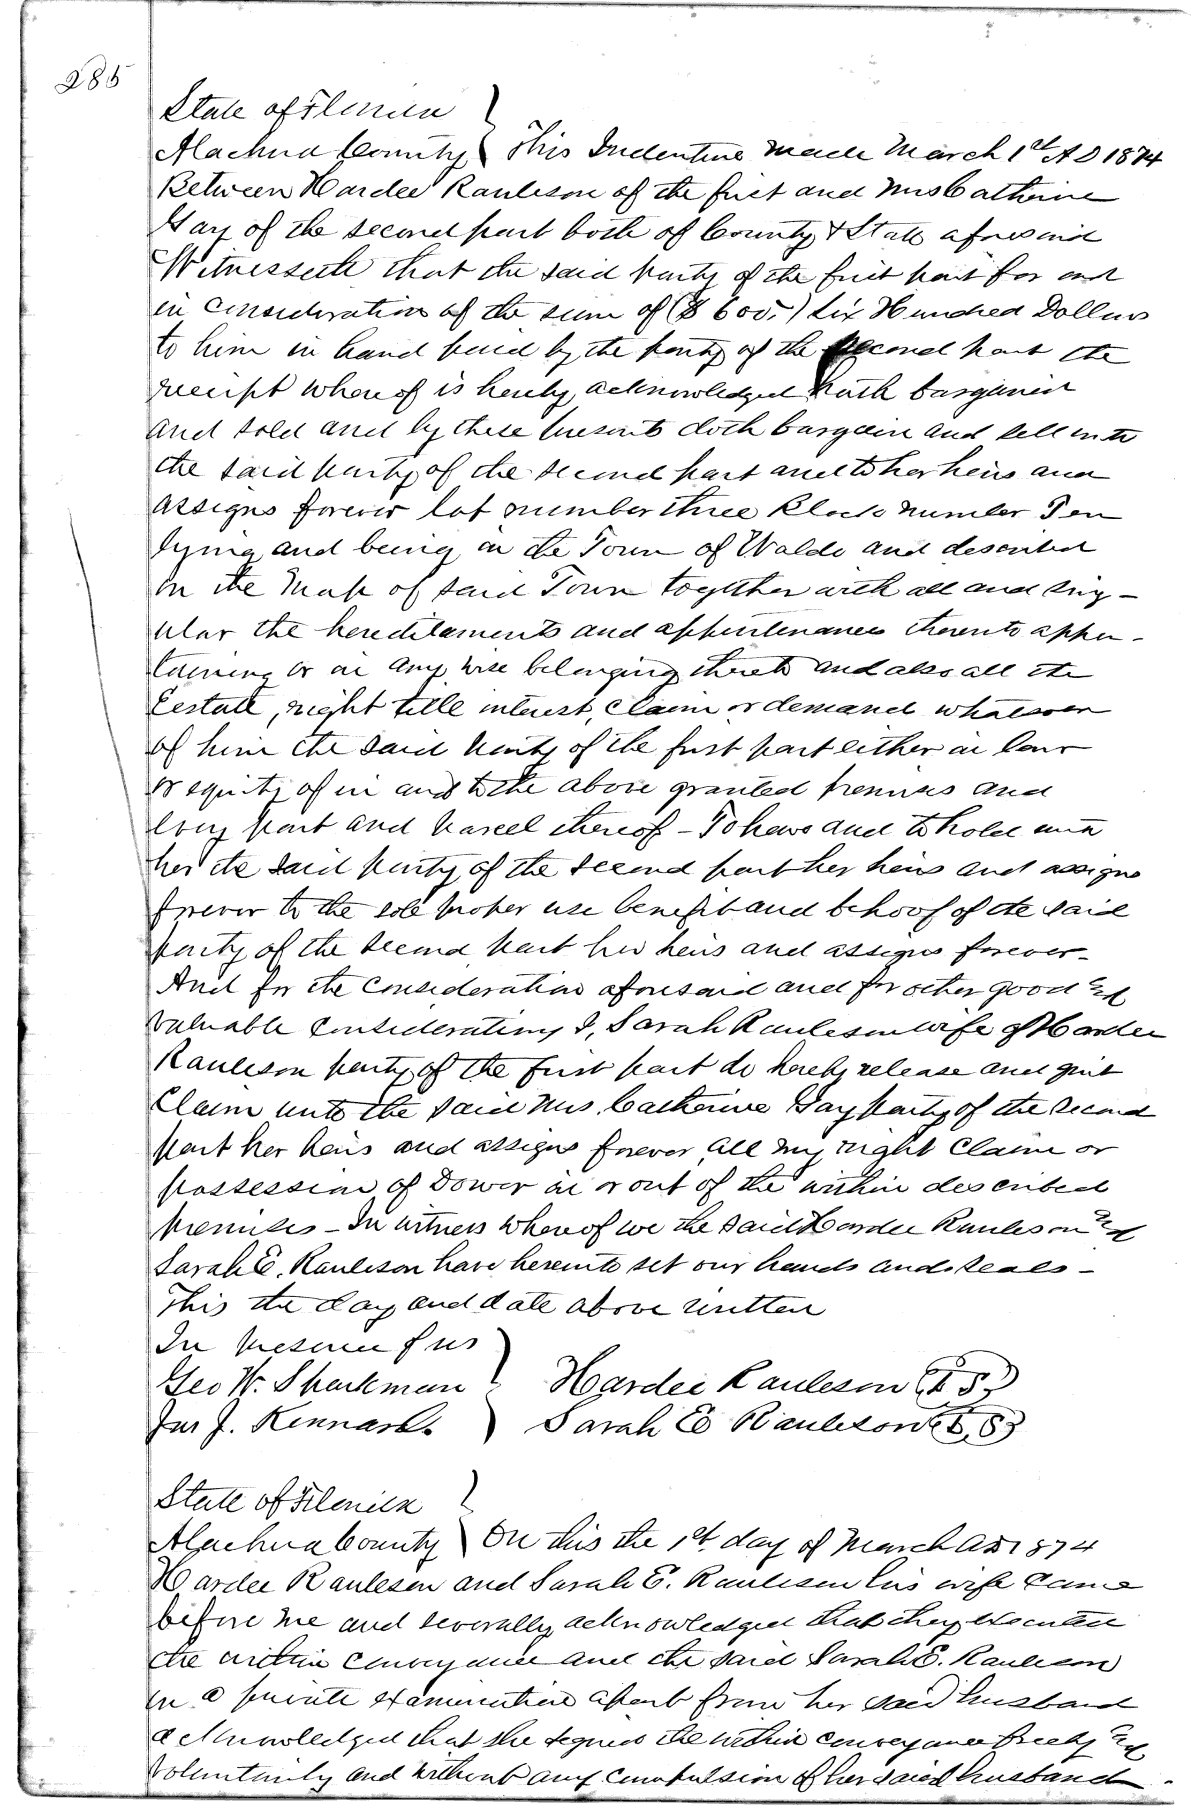 285
State of Florida
Alachua County } This Indenture made March 1st A D 1874
Between Hardee Rauleson of the first and Mrs Catherine
Gay of the second part both of County & State aforesaid
Witnesseth that the said party of the first part for and
in consideration of the sum of ($600.-) Six Hundred Dollars
to him in hand paid by the party of the second part the
receipt whereof is hereby acknowledged hath bargained
and sold and by these presents doth bargain and sell unto
the said party of the second part and to her heirs and
assigns forever lot number three Block number Ten
lying and being in the Town of Waldo and described
in the Map of said Town together with all and sing-
ular the hereditaments and appurtenances thereto apper-
taining or in any wise belonging thereto and also all the
Eestate, right title interest, claim or demand whatsoever
of him the said party of the first part either in law
or equity of in and to the above granted premises and
every part and parcel thereof - To have and to hold unto
her the said party of the second part her heirs and assigns
forever to the sole proper use benefit and behoof of the said
party of the second part her heirs and assigns forever-
And for the consideration aforesaid and for other good and
valuable considerations I, Sarah Rauleson wife of Hardee
Rauleson party of the first part do hereby release and quit
Claim unto the said Mrs. Catherine Gay party of the second
part her heirs and assigns forever all my right Claim or
possession of Dower in or out of the within described
premises - In witness whereof we the said Hardee Rauleson and
Sarah E. Rauleson have hereunto set our hands and seals -
This the day and date above written
In presence of us
Geo W. Sparkman } Hardee Rauleson (L S)
Jas J. Kennard } Sarah E Rauleson (L.S)
State of Florida
Alachua County } On this the 1st day of March AD 1874
Hardee Rauleson and Sarah E. Rauleson his wife came
before me and severally acknowledged that they executed
the within conveyance and the said Sarah E. Rauleson
in a private examination apart from her said husband
acknowledged that she signed the within conveyance freely and
voluntarily and without any compulsion of her said husband.